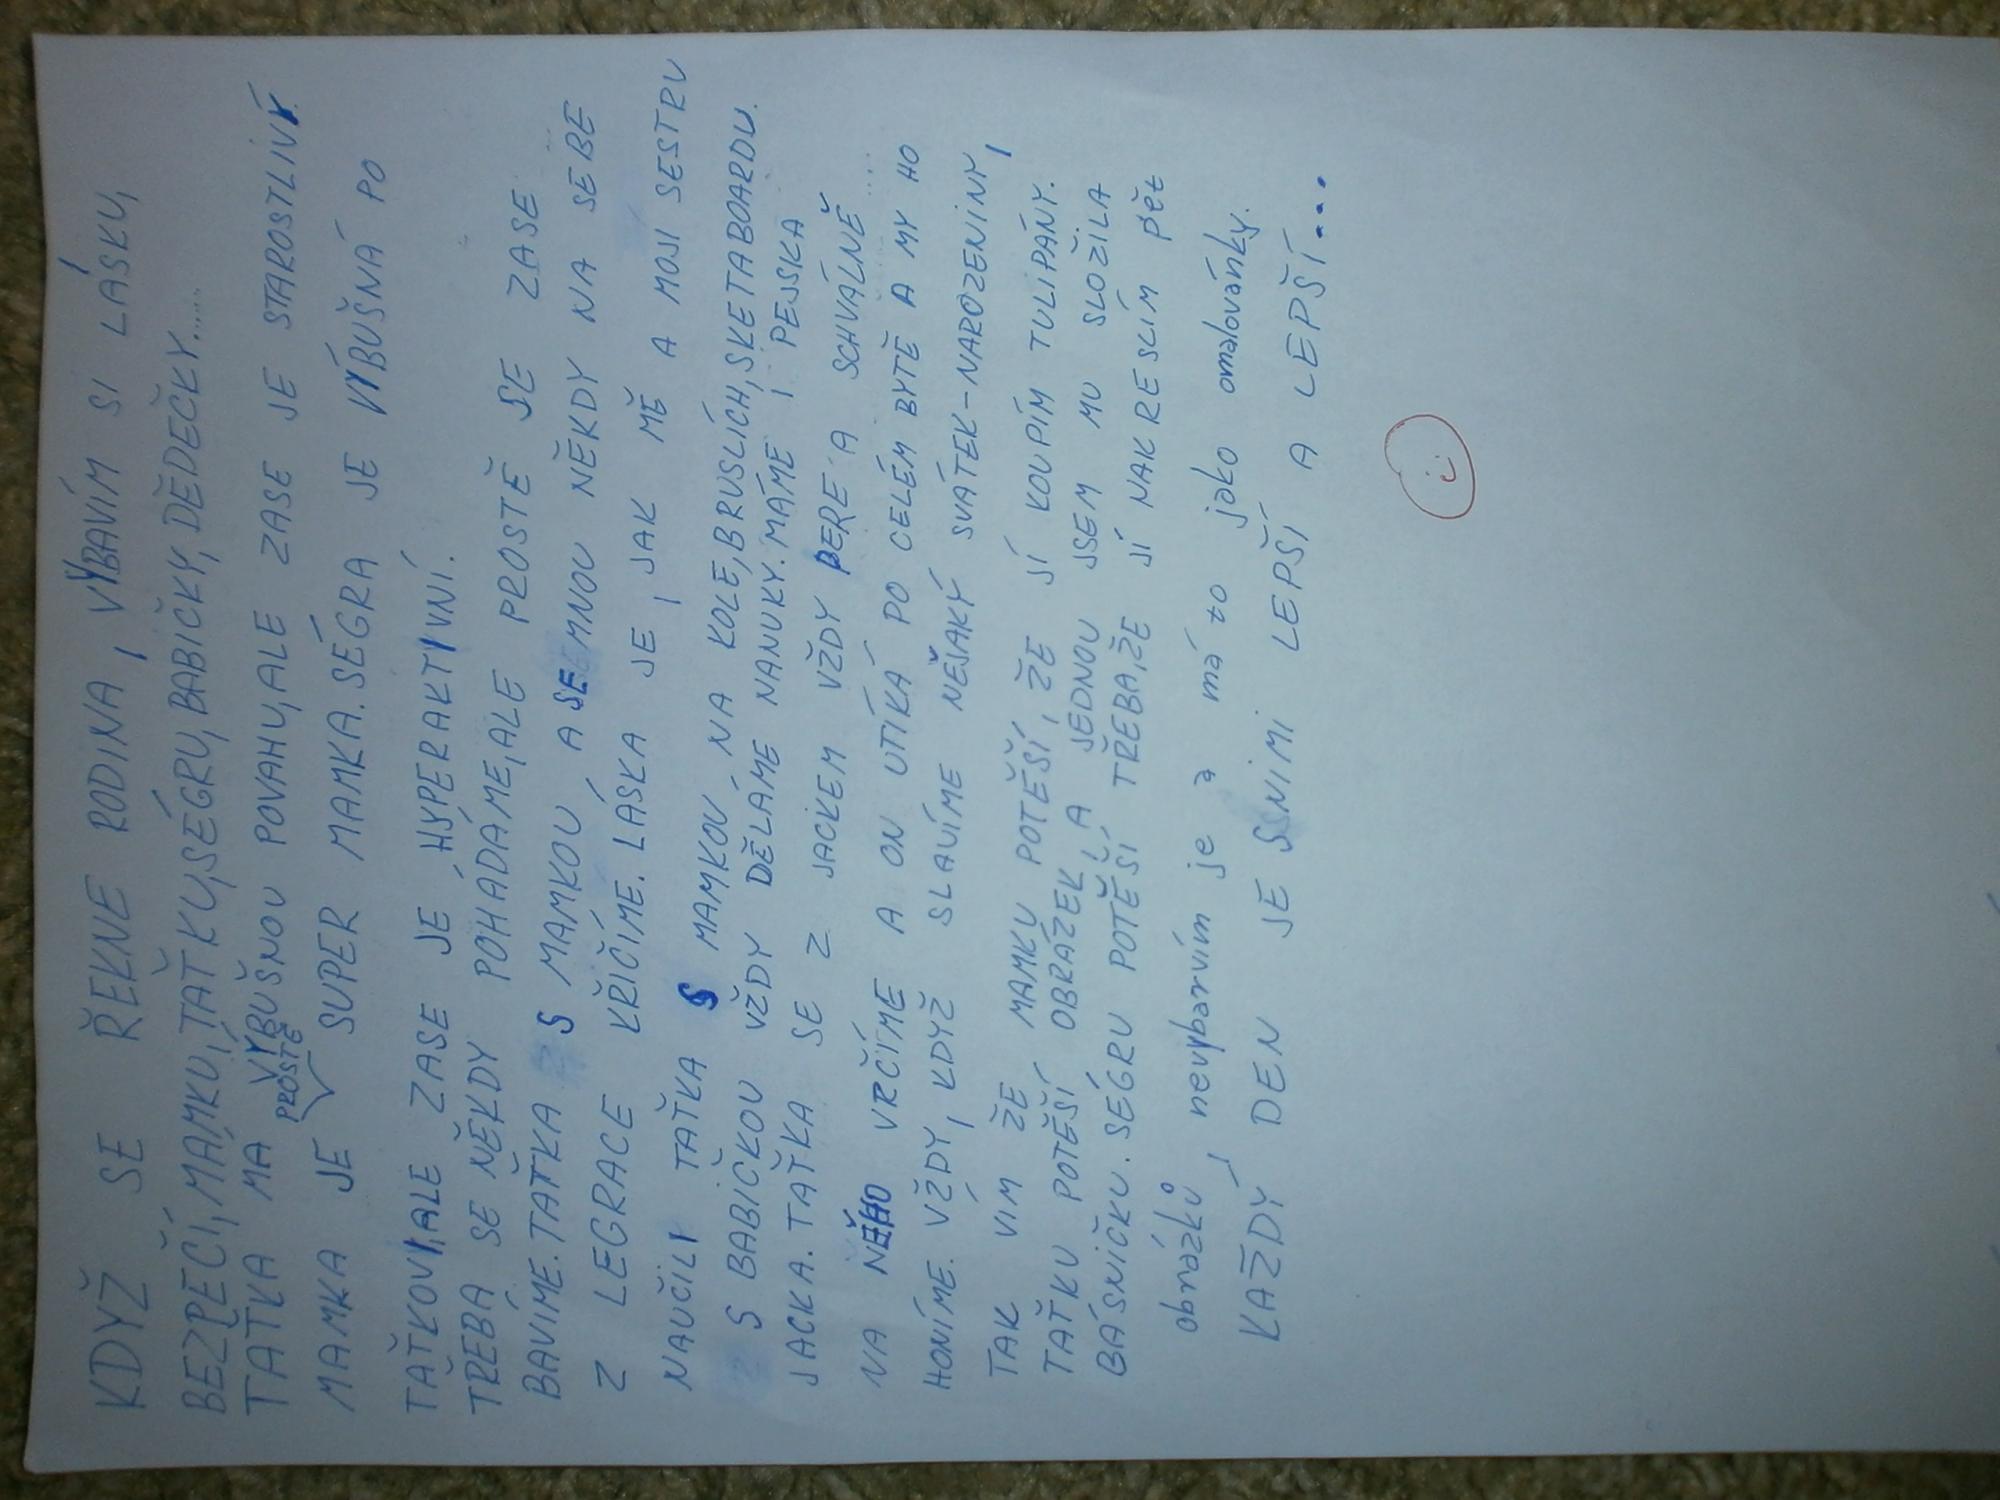 KDYŽ SE ŘEKNE RODINA, VYBAVÍM SI LÁSKU,
BEZPEČÍ, MAMKU, TAŤKU, SÉGRU, BABIČKY, DĚDEČKY......
TAŤKA MA VÝBUŠNOU POVAHU, ALE ZASE JE STAROSTLIVÝ
PROSTĚ
MAMKA JE SUPER MAMKA. SÉGRA JE VÝBUŠNÁ PO
TAŤKOVI, ALE ZASE JE HYPERAKTIVNÍ.
TŘEBA SE NĚKDY POHÁDÁME, ALE PROSTĚ SE ZASE
BAVIME. TAŤKA S MAMKOU A SEMNOU NĚKDY NA SEBE
Z LEGRACE KŘIČÍME. LÁSKA JE I JAK MĚ A MOJÍ SESTRU
NAUČILI TAŤKA S MAMKOU NA KOLE, BRUSLÍCH, SKETABOARDU.
S BABIČKOU VŽDY DĚLÁME NANUKY. MÁME I PEJSKA
JACKA. TAŤKA SE Z JACKEM VŽDY PERE A SCHVÁLNĚ....
NA NĚHO VRČÍME A ON UTÍKÁ PO CELÉM BYTĚ A MY HO
HONÍME. VŽDY, KDYŽ SLAVÍME NĚJAKÝ SVÁTEK-NAROZENINY,
TAK VIM ŽE MAMKU POTĚŠÍ, ŽE JÍ KOUPÍM TULIPÁNY.
TAŤKU POTĚŠÍ OBRÁZEK, A JEDNOU JSEM MU SLOŽILA
BÁSNIČKU. SÉGRU POTĚŠÍ TŘEBA, ŽE JÍ NAKRESLÍM pět
obrázků, nevybarvím je a má to jako omalovánky.
KAŽDÝ DEN JE SNIMI LEPŠÍ A LEPŠÍ...